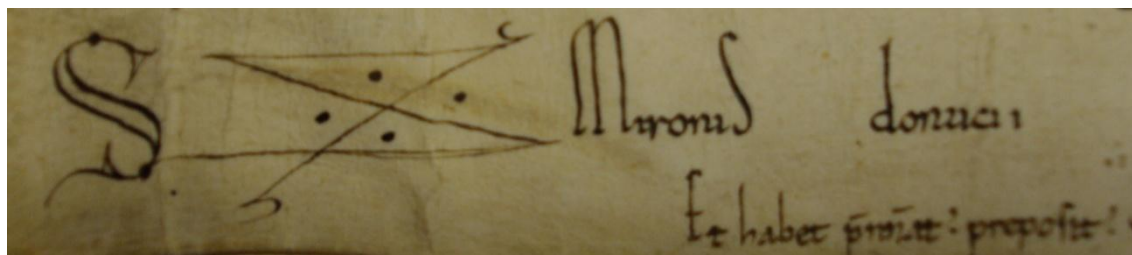 S Mironis donucii
Et habet proposit